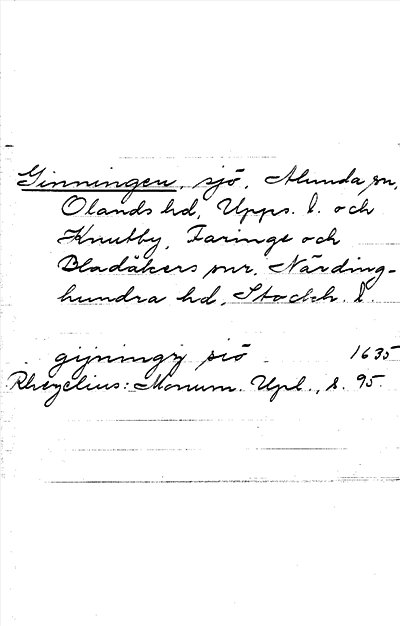 Ginningen, sjö, Alunda sn,
Olands hd, Upps. l. och
Knutby, Faringe och
Bladåkers snr. Närding-
hundra hd, Stockh. l.
gijningz siö 1635
Rhezelius: Monum. Upl., s. 95.